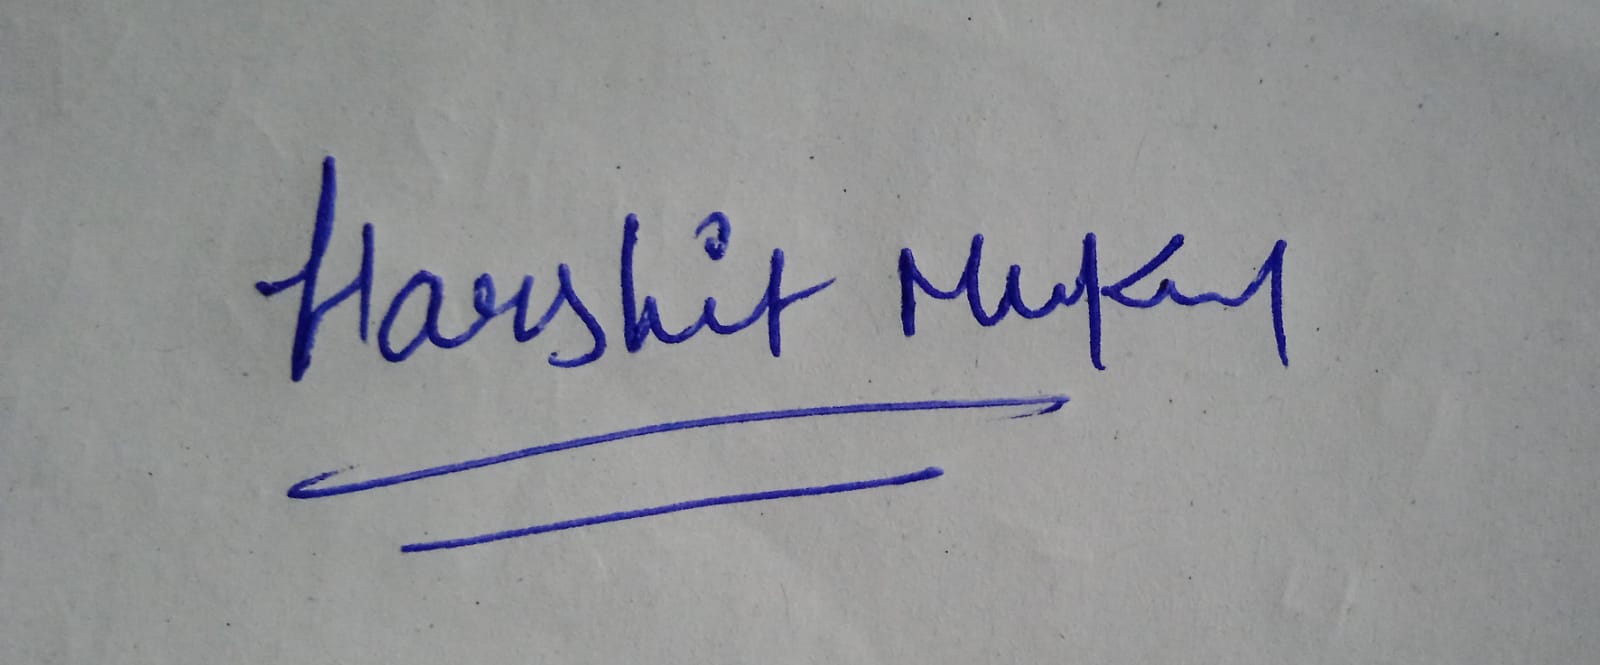 Harshit Mukul